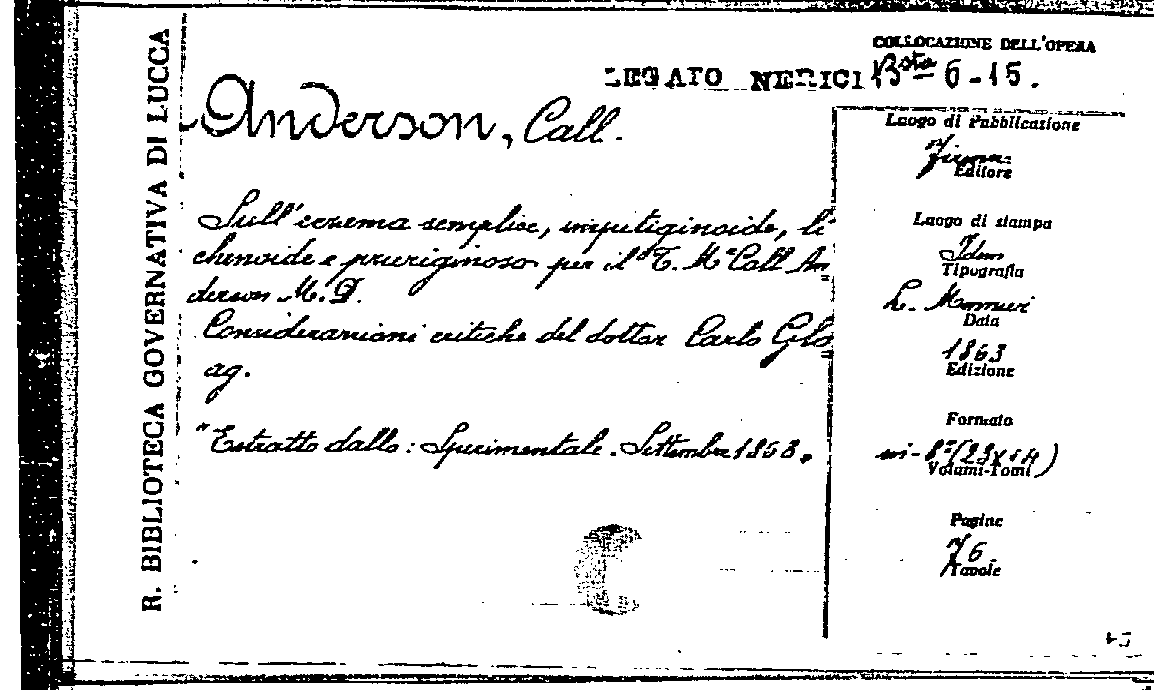 R. BIBLIOTECA GOVERNATIVA DI LUCCA
COLLOCAZIONE DELL'OPERA
LEGATO NERICI Bsta 6-15.
Anderson, Call.
Sull'eczema semplice, impetiginoide, li
chenoide e pruriginoso per il T. Mc Call An=
derson M.D.
Considerazioni critiche del dottor Carlo Glo=
ag.
"Estratto dallo: Sperimentale. Settembre 1863.
Luogo di Pubblicazione
Firenze
Editore
Luogo di stampa
Idem
Tipografia
Data
1863
Edizione
Formato
in-8° (23x14)
Volumi-Tomi
Pagine
Tavole